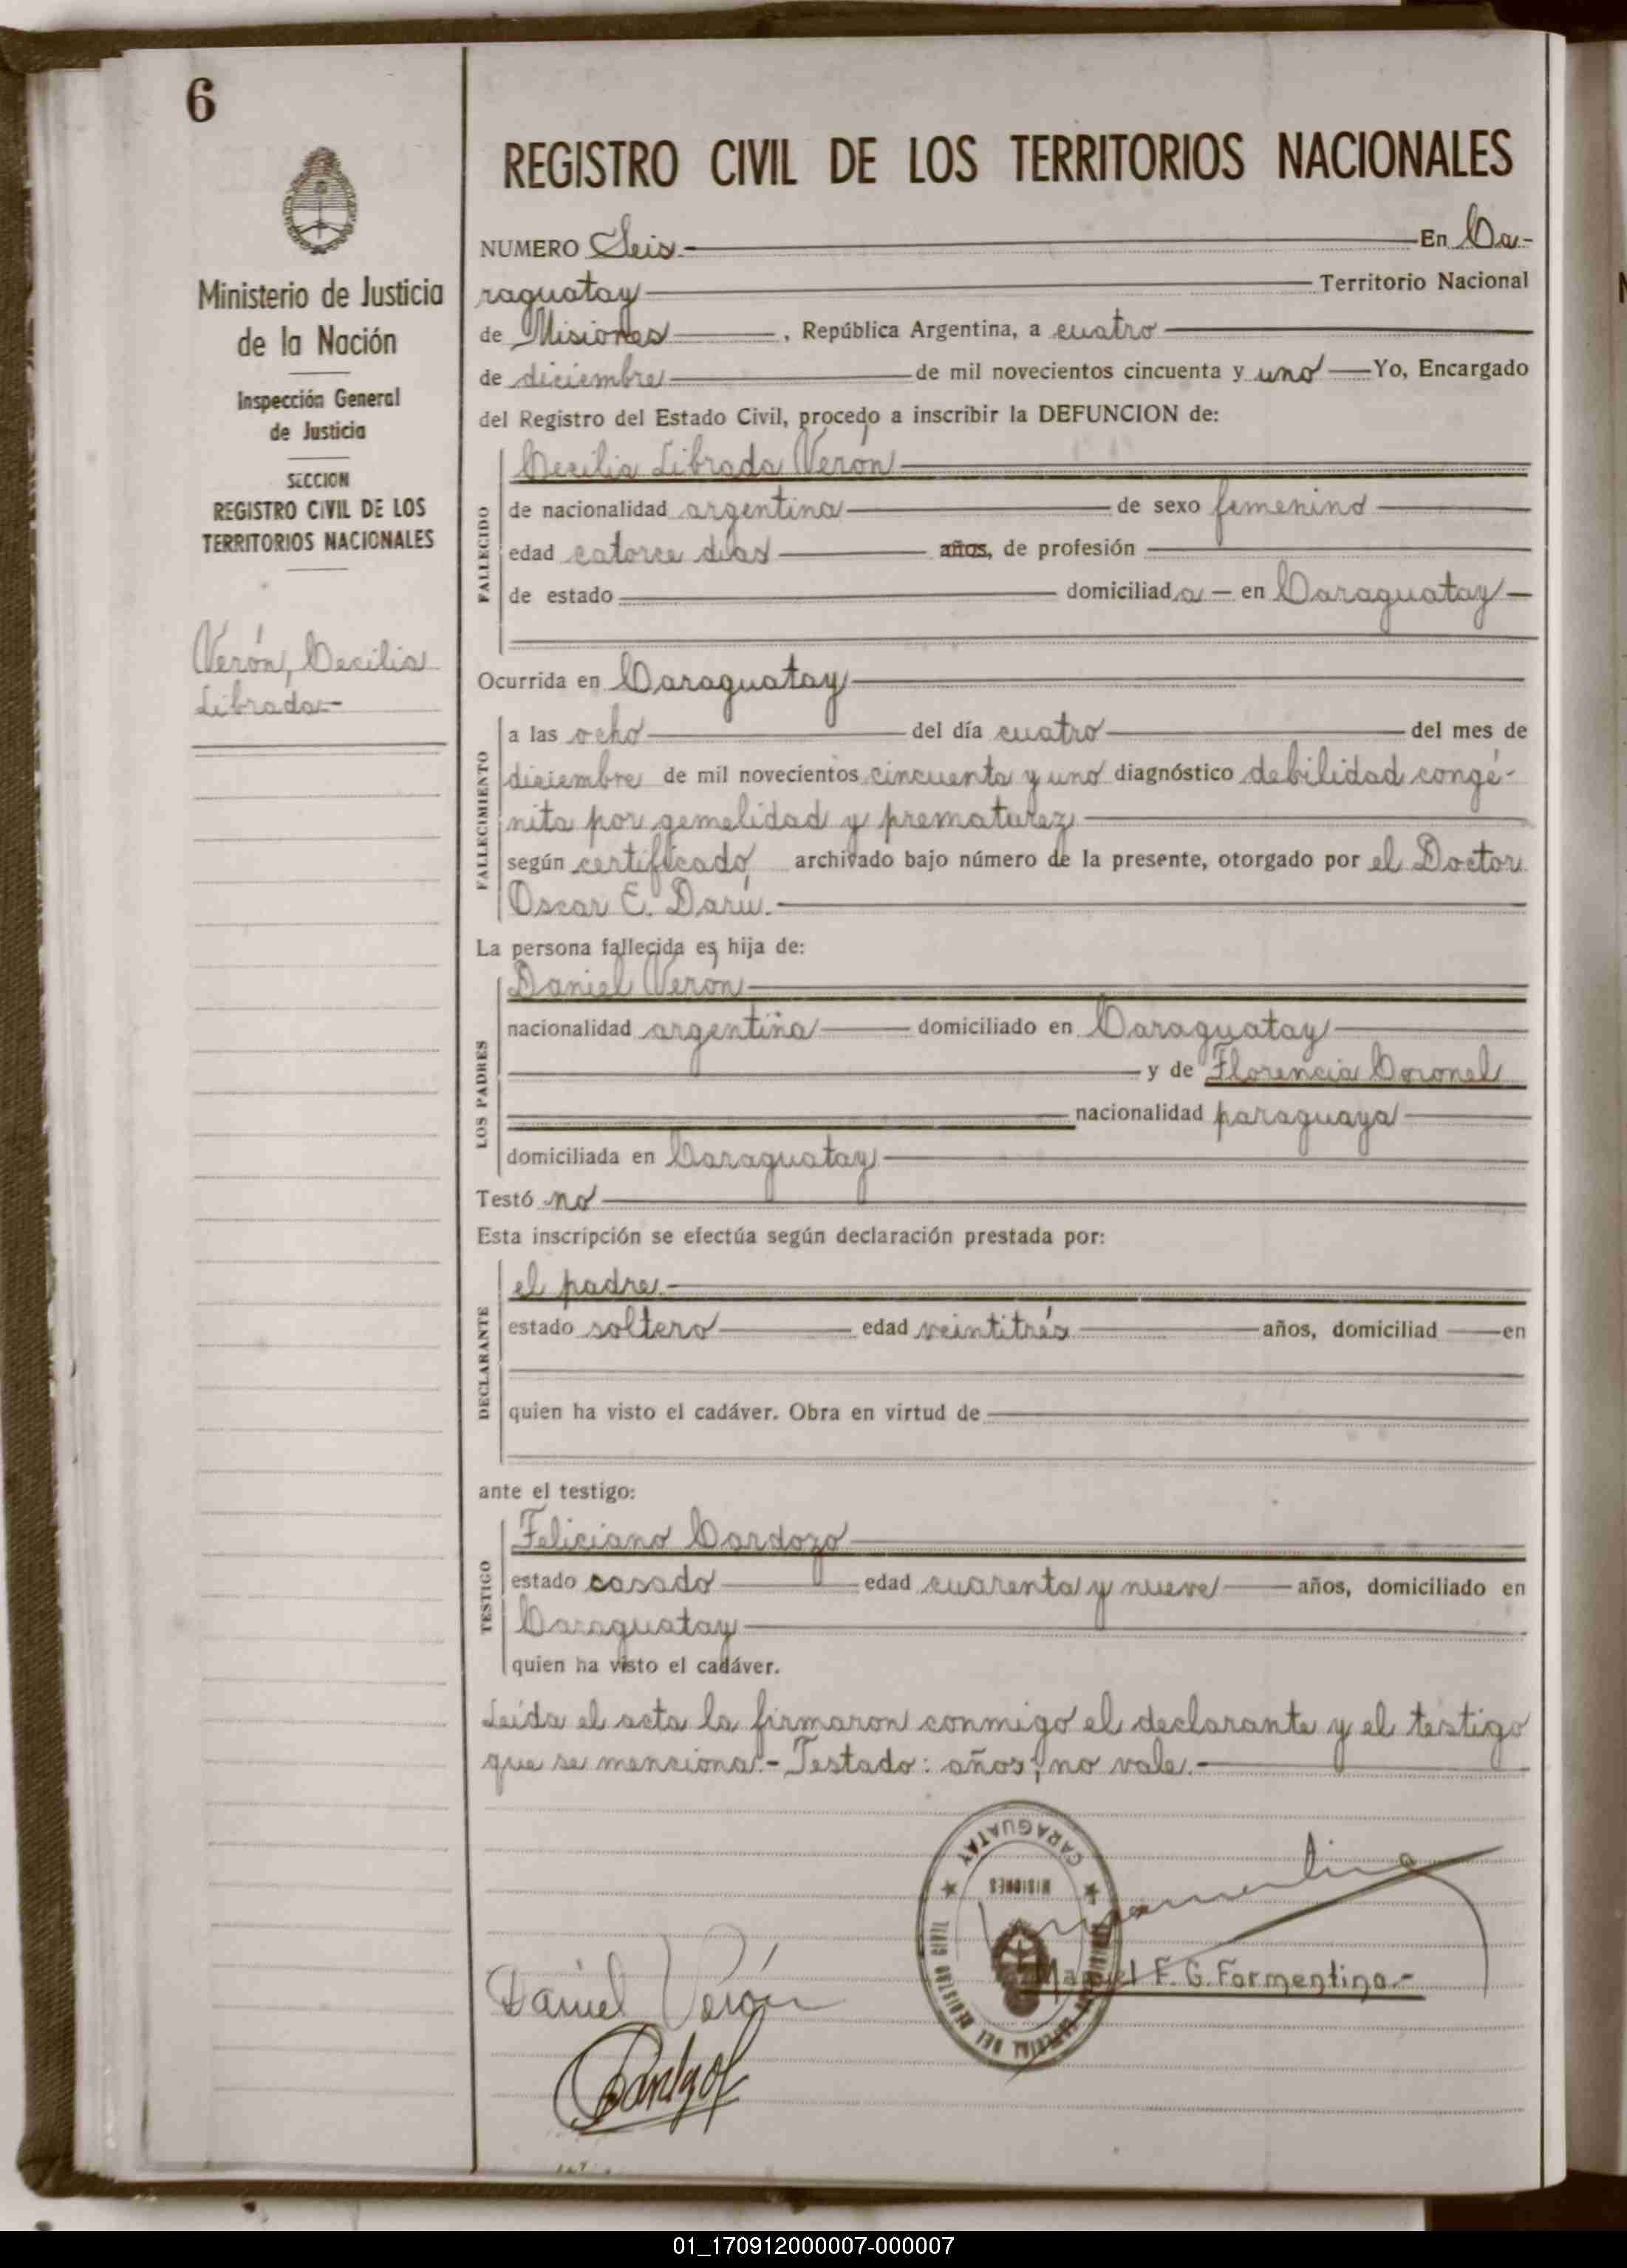 6
REGISTRO CIVIL DE LOS TERRITORIOS NACIONALES
Ministerio de Justicia
de la Nación
Inspección General
de Justicia
SECCION
REGISTRO CIVIL DE LOS
TERRITORIOS NACIONALES
Verón, Cecilia
Librada.-
NUMERO Seis.- En Ca-
raguatay Territorio Nacional
de Misiones, República Argentina, a cuatro
de diciembre de mil novecientos cincuenta y uno Yo, Encargado
del Registro del Estado Civil, procedo a inscribir la DEFUNCION de:
FALLECIDO
Cecilia Librada Verón
de nacionalidad argentina de sexo femenino
edad catorce días años, de profesión
de estado domiciliada en Caraguatay
Ocurrida en Caraguatay
FALLECIMIENTO
a las ocho del día cuatro del mes de
diciembre de mil novecientos cincuenta y uno diagnóstico debilidad congé-
nita por gemelidad y prematurez
según certificado archivado bajo número de la presente, otorgado por el Doctor
Oscar E. Darú.
La persona fallecida es hija de:
LOS PADRES
Daniel Veron
nacionalidad argentina domiciliado en Caraguatay
y de Florencia Coronel
nacionalidad paraguaya
domiciliada en Caraguatay
Testó no
Esta inscripción se efectúa según declaración prestada por:
DECLARANTE
el padre.
estado soltero edad veintitrés años, domiciliad en
quien ha visto el cadáver. Obra en virtud de
ante el testigo:
TESTIGO
Feliciano Cardozo
estado casado edad cuarenta y nueve años, domiciliado en
Caraguatay
quien ha visto el cadáver.
Leída el acta la firmaron conmigo el declarante y el testigo
que se menciona.- Testado: años; no vale.-
CARAGUATAY
MISIONES
Daniel Verón
Manuel F. G. Formentino.-
01_170912000007-000007